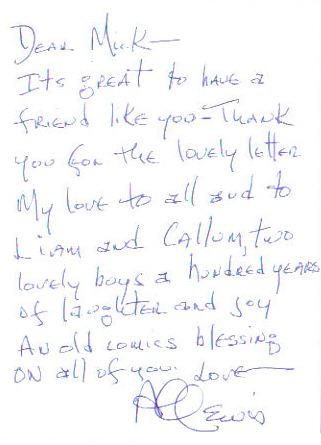 Dear Mick—
Its great to have a
friend like you – Thank
you for the lovely letter
My love to all and to
Liam and Callum, two
lovely boys a hundred years
of laughter and joy
An old comics blessing
on all of you. Love—
Al Lewis